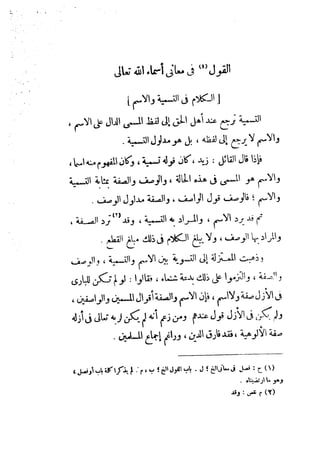 القول (١) فى معانى أسماء الله تعالى
[ الكلام فى التسمية والاسم ]
التسمية ترجع عند أهل الحق إلى لفظ المسمى الدال على الاسم ،
والاسم لا يرجع إلى لفظه ، بل هو مدلول التسمية .
فإذا قال القائل : زيد ، كان قوله تسمية ، وكان المفهوم منه اسما ،
والاسم هو المسمى فى هذه الحالة ، والوصف والصفة بمثابة التسمية
والاسم ؛ فالوصف قول الواصف ، والصفة مدلول الوصف .
ثم قد يرد الاسم ، والمراد به التسمية ، وقد (٢) ترد الصفة ،
والمراد بها الوصف ، ولا يبلغ الكلام فى ذلك مبلغ القطع .
وذهبت المعتزلة إلى التسوية بين الاسم والتسمية ، والوصف
والصفة ، والتزموا على ذلك بدعة شنعاء ، فقالوا : لو لم تكن للبارى
فى الأزل صفة ولا اسم ، فإن الاسم والصفة أقوال المسمين والواصفين ،
ولم يكن فى الأزل قول عندهم . ومن زعم أنه لم يكن لربه تعالى فى أزله
صفة الألوهية ، فقد فارق الدين ، وراغم إجماع المسلمين .
(١) ح : فصل فى معانى الخ ؛ ل . باب القول الخ ؛ ب ، م : لم يذكرا كلمة باب أو فصل ،
وهو ما ارتضيناه .
(٢) م نقص : وقد